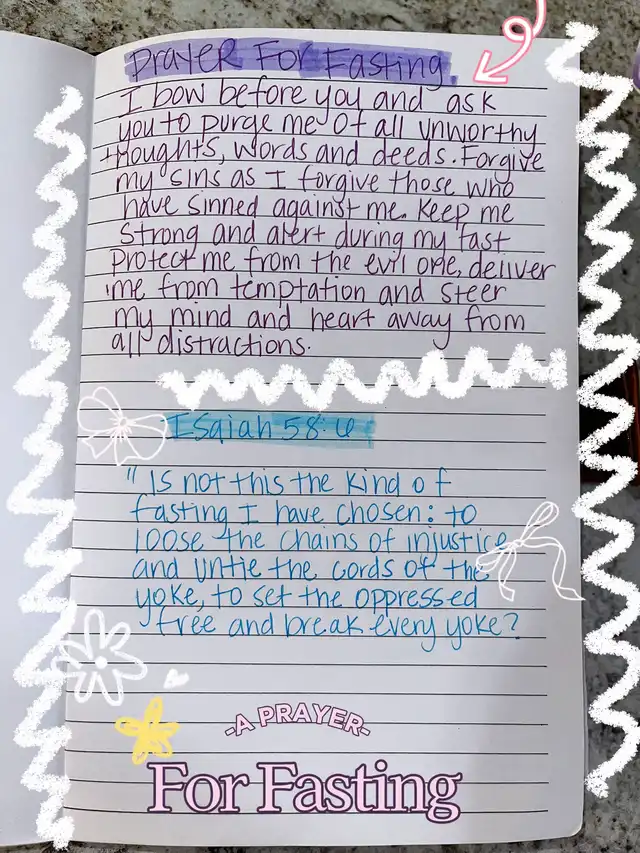 Prayer For Fasting
I bow before you and ask
you to purge me of all unworthy
thoughts, words and deeds. Forgive
my sins as I forgive those who
have sinned against me. Keep me
strong and alert during my fast
protect me from the evil one, deliver
me from temptation and steer
my mind and heart away from
all distractions.
Isaiah 58:6
" Is not this the kind of
fasting I have chosen: to
loose the chains of injustice
and untie the cords of the
yoke, to set the oppressed
free and break every yoke?
-A PRAYER-
For Fasting